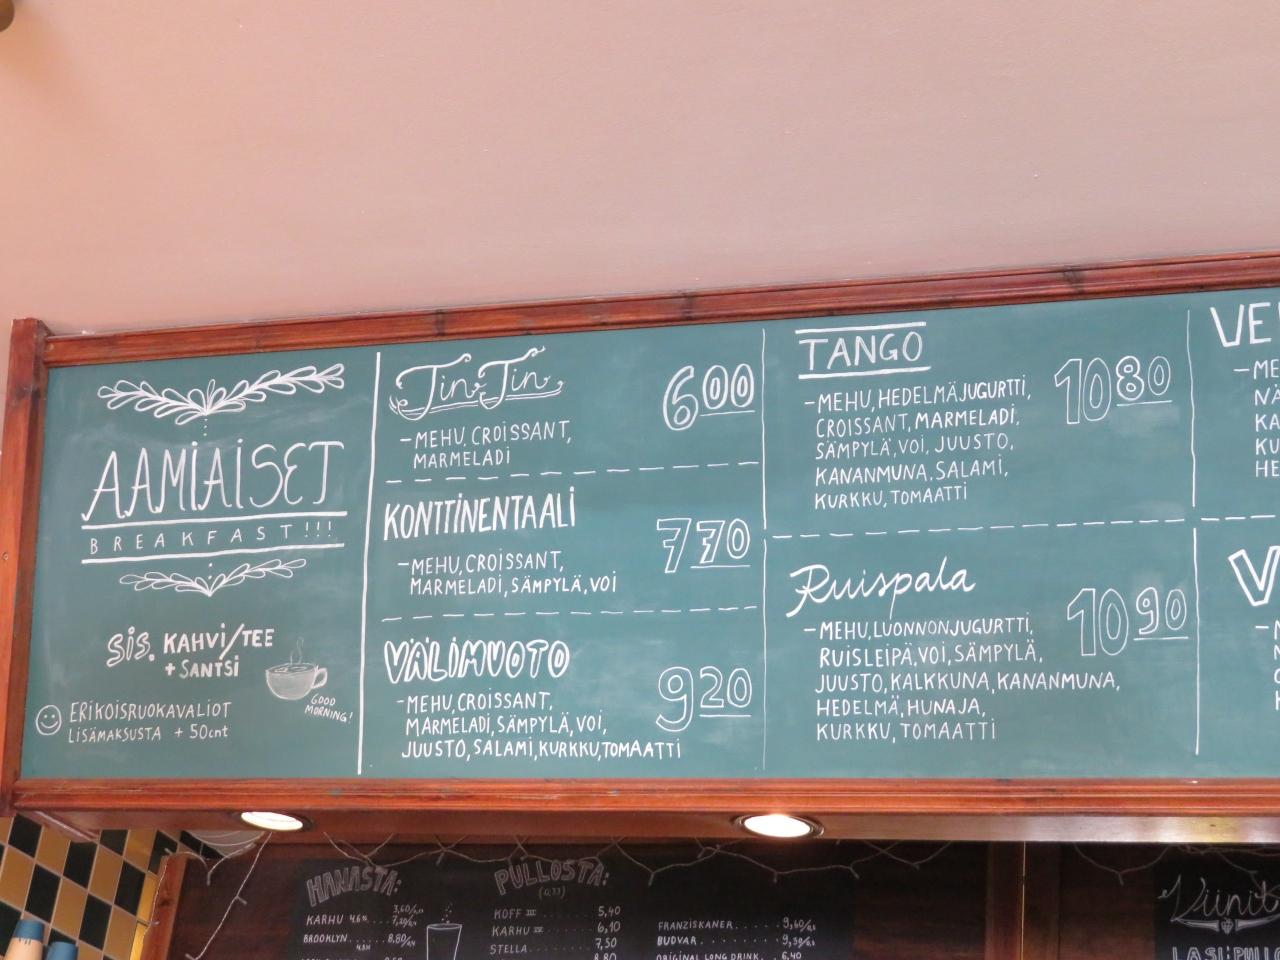 AAMIAISET
BREAKFAST!!!
SIS. KAHVI/TEE
+ SANTSI
GOOD
MORNING!
ERIKOISRUOKAVALIOT
LISÄMAKSUSTA + 50cnt
Tin Tin 600
-MEHU, CROISSANT,
MARMELADI
KONTTINENTAALI 770
-MEHU, CROISSANT,
MARMELADI, SÄMPYLÄ, VOI
VÄLIMUOTO 920
-MEHU, CROISSANT,
MARMELADI, SÄMPYLÄ, VOI,
JUUSTO, SALAMI, KURKKU, TOMAATTI
TANGO 1080
-MEHU, HEDELMÄJUGURTTI,
CROISSANT, MARMELADI,
SÄMPYLÄ, VOI, JUUSTO,
KANANMUNA, SALAMI,
KURKKU, TOMAATTI
Ruispala 1090
-MEHU, LUONNONJUGURTTI,
RUISLEIPÄ, VOI, SÄMPYLÄ,
JUUSTO, KALKKUNA, KANANMUNA,
HEDELMÄ, HUNAJA,
KURKKU, TOMAATTI
VE
-ME
NÄ
KA
KU
HE
V
HANASTA:
KARHU 4.6%
BROOKLYN 8,80
PULLOSTA:
(0,33)
KOFF III 5,40
KARHU IV 6,10
STELLA 7,50
FRANZISKANER
BUDVAR
ORIGINAL LONG DRINK 6,40